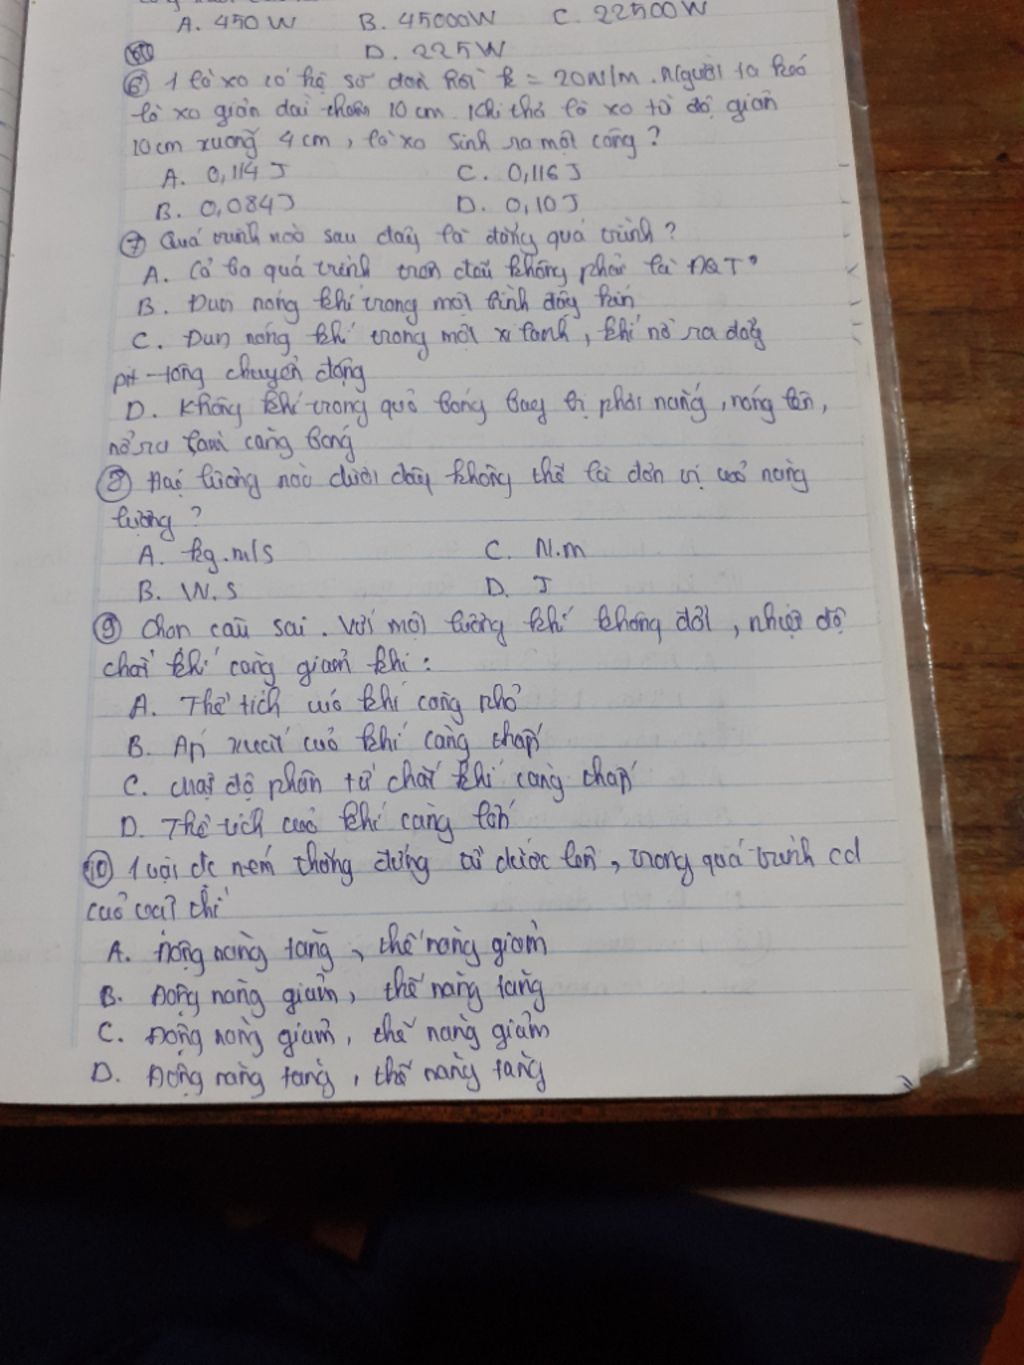 A. 450 W B. 45000W C. 22500W
D. 225W
⑥ 1 lò xo có hệ số đàn hồi k = 20N/m. Người ta kéo
lò xo giãn dài thêm 10 cm. Khi thả lò xo từ độ giãn
10cm xuống 4cm, lò xo sinh ra một công?
A. 0,114 J C. 0,116 J
B. 0,084J D. 0,10J
⑦ Quá trình nào sau đây là đẳng quá trình?
A. Cả ba quá trình trên đều không phải là ĐQT.
B. Đun nóng khí trong một bình đậy kín
C. Đun nóng khí trong một xi lanh, khí nở ra đẩy
pit-tông chuyển động
D. Không khí trong quả bóng bay bị phơi nắng, nóng lên,
nở ra làm căng bóng
⑧ Đại lượng nào dưới đây không thể là đơn vị của năng
lượng?
A. kg.m/s C. N.m
B. W.s D. J
⑨ Chọn câu sai. Với một lượng khí không đổi, nhiệt độ
chất khí càng giảm khi:
A. Thể tích của khí càng nhỏ
B. Áp suất của khí càng thấp
C. Mật độ phân tử chất khí càng thấp
D. Thể tích của khí càng lớn
⑩ 1 vật đc ném thẳng đứng từ dưới lên, trong quá trình cđ
của vật thì
A. Động năng tăng, thế năng giảm
B. Động năng giảm, thế năng tăng
C. Động năng giảm, thế năng giảm
D. Động năng tăng, thế năng tăng